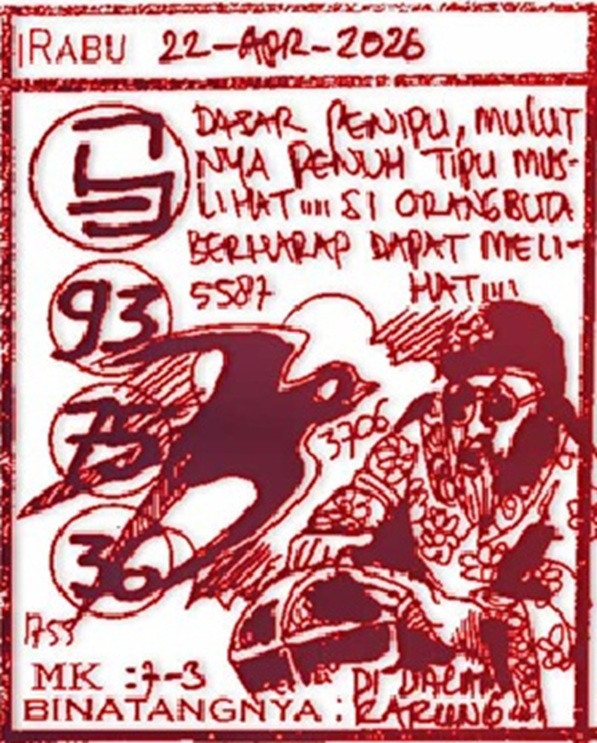 RABU 22-APR-2026
DASAR PENIPU, MULUT
NYA PENUH TIPU MUS-
LIHAT..... SI ORANG BUTA
BERHARAP DAPAT MELI-
HAT.....
5587
93
75
3706
36
1755
MK :7-3
BINATANGNYA : DI DALAM
KARUNG.....